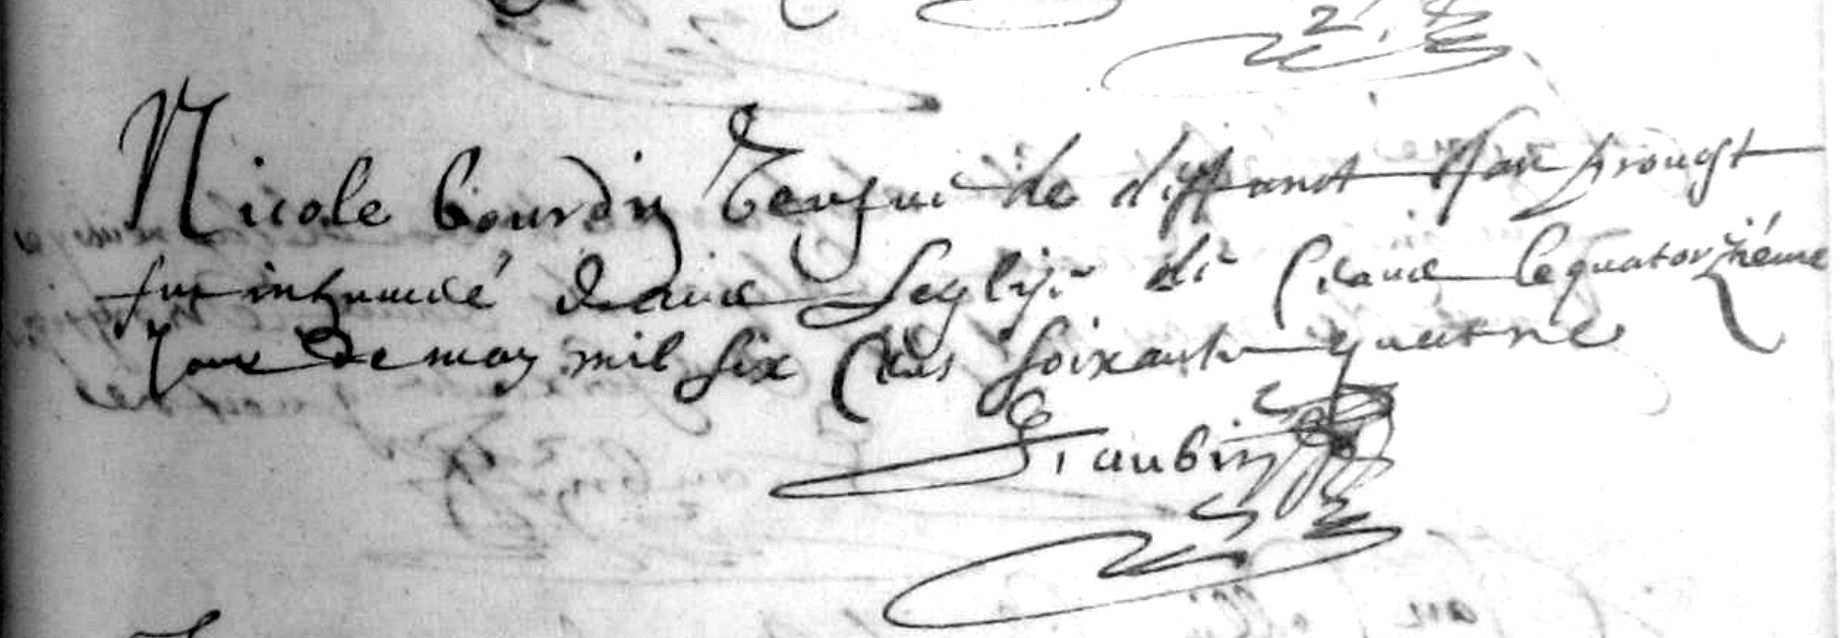 Nicole bourdin veufue de deffunct Jan prougt
fut inhumée dans leglise de Craux le quatorziéme
Jour de may mil six Cens soixante quatre
J aubin